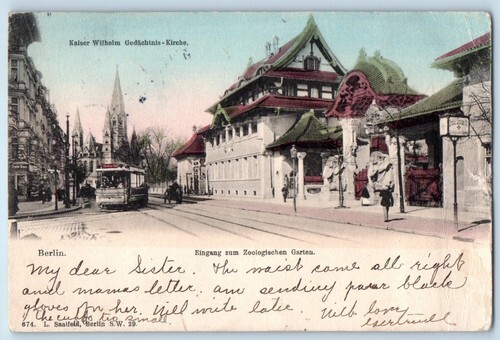 Kaiser Wilhelm Gedächtnis-Kirche.
Berlin.
Eingang zum Zoologischen Garten.
My dear Sister. The waist came all right
and mamas letter. am sending pair black
gloves for her. Will write later. With love
the cuffs too small
Gertrude
674. L. Saalfeld, Berlin S.W. 29.